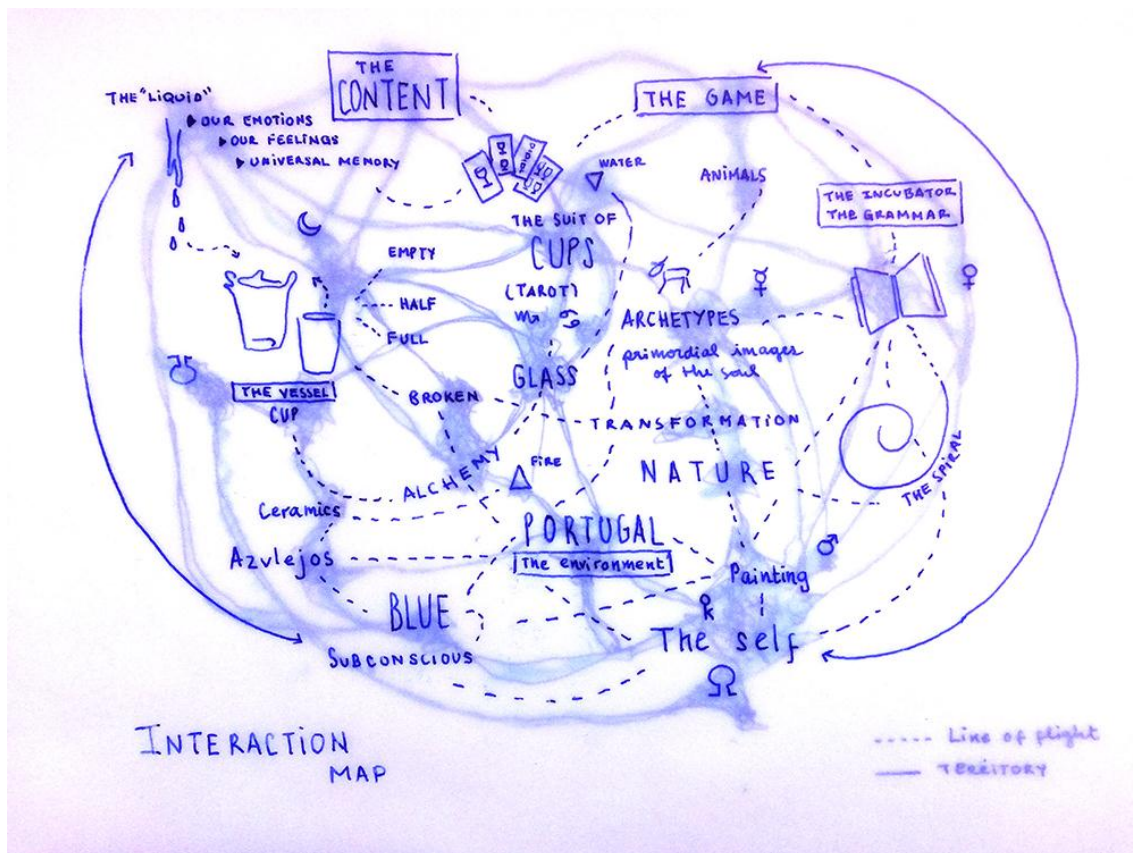 THE "LIQUID"
OUR EMOTIONS
OUR FEELINGS
UNIVERSAL MEMORY
THE
CONTENT
THE GAME
WATER
ANIMALS
THE INCUBATOR
THE GRAMMAR
THE SUIT OF
CUPS
(TAROT)
EMPTY
HALF
FULL
ARCHETYPES
primordial images
of the soul
GLASS
THE VESSEL
CUP
BROKEN
TRANSFORMATION
ALCHEMY
FIRE
NATURE
THE SPIRAL
Ceramics
PORTUGAL
The environment
Azulejos
Painting
BLUE
The self
SUBCONSCIOUS
INTERACTION
MAP
Line of flight
TERRITORY